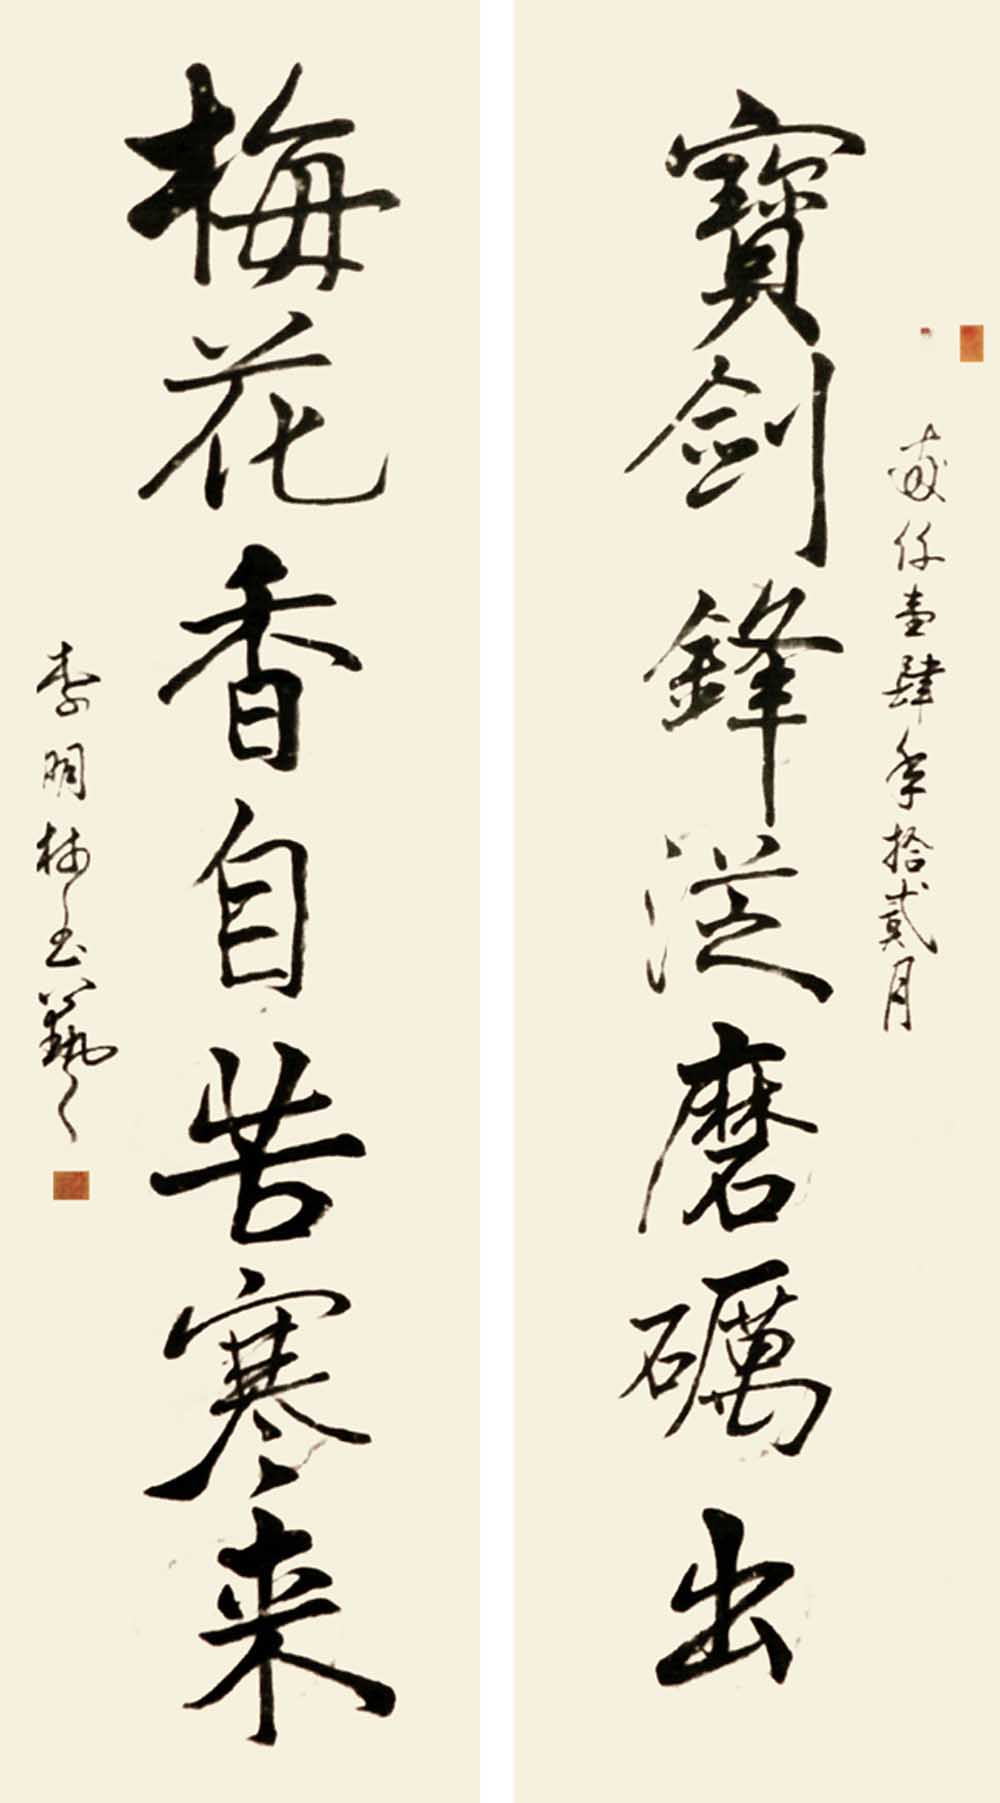 仟壹肆年拾貳月
寶劍鋒從磨礪出
梅花香自苦寒来
李明